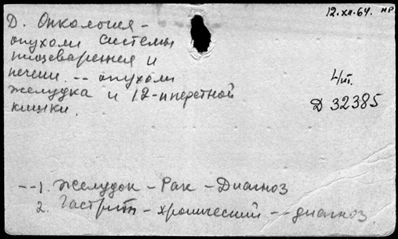 12.XII.64. НР
Д. Онкология -
опухоли системы
пищеварения и
печени. -- опухоли
желудка и 12-иперстной
кишки.
4/II.
Д 32385
-- 1. Желудок - Рак - Диагноз
2. Гастриты - хронический -- диагноз